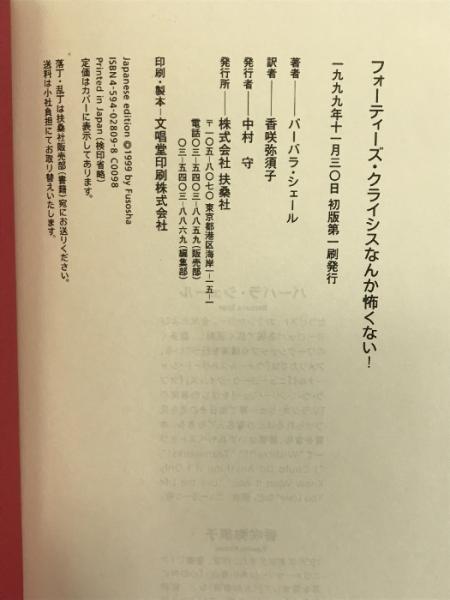 フォーティーズ・クライシスなんか怖くない！
一九九九年十一月三〇日 初版第一刷発行
著者―――バーバラ・シェール
訳者―――香咲弥須子
発行者――中村 守
発行所――株式会社 扶桑社
〒一〇五-八〇七〇 東京都港区海岸一-一五-一
電話〇三-五四〇三-八八五九(販売部)
〇三-五四〇三-八八六九(編集部)
印刷・製本―文唱堂印刷株式会社
Japanese edition ©1999 by Fusosha
ISBN4-594-02809-8 C0098
Printed in Japan (検印省略)
定価はカバーに表示してあります。
落丁・乱丁は扶桑社販売部(書籍)宛にお送りください。
送料は小社負担にてお取り替えいたします。